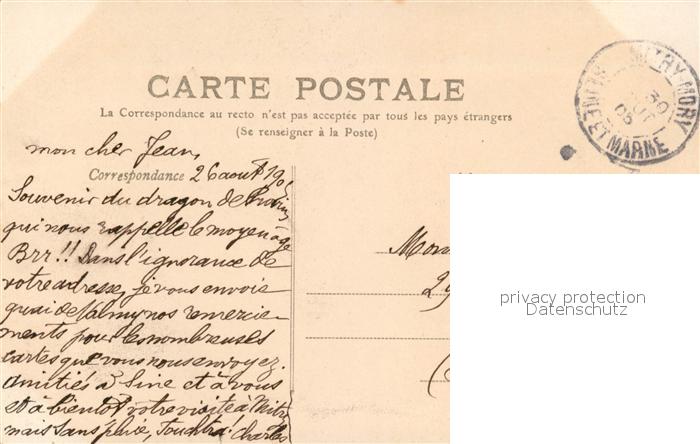 CARTE POSTALE
La Correspondance au recto n'est pas acceptée par tous les pays étrangers
(Se renseigner à la Poste)
MITRY-MORY
SEINE ET MARNE
30
05
mon cher Jean,
Correspondance 26 aout 190
Souvenir du dragon de Provins
qui nous rappelle le moyen âge
Brr!! Dans l'ignorance de
votre adresse, je vous envoie
quai de Valmy nos remercie-
ments pour les nombreuses
cartes que vous nous envoyez.
Amitiés à Line et à vous
et à bientôt votre visite à Mitry
mais sans pluie, Charles
Mon
29
(
privacy protection
Datenschutz